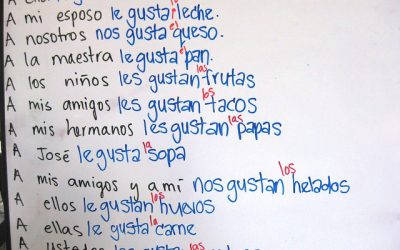 A
A mi esposo le gusta leche.
A nosotros nos gusta el queso.
A la maestra le gusta el pan.
A los niños les gustan las frutas
A mis amigos les gustan los tacos
A mis hermanos les gustan las papas
A José le gusta la sopa
A mis amigos y a mí nos gustan los helados
A ellos le gustan los huevos
A ellas le gusta la carne
A Ustedes las